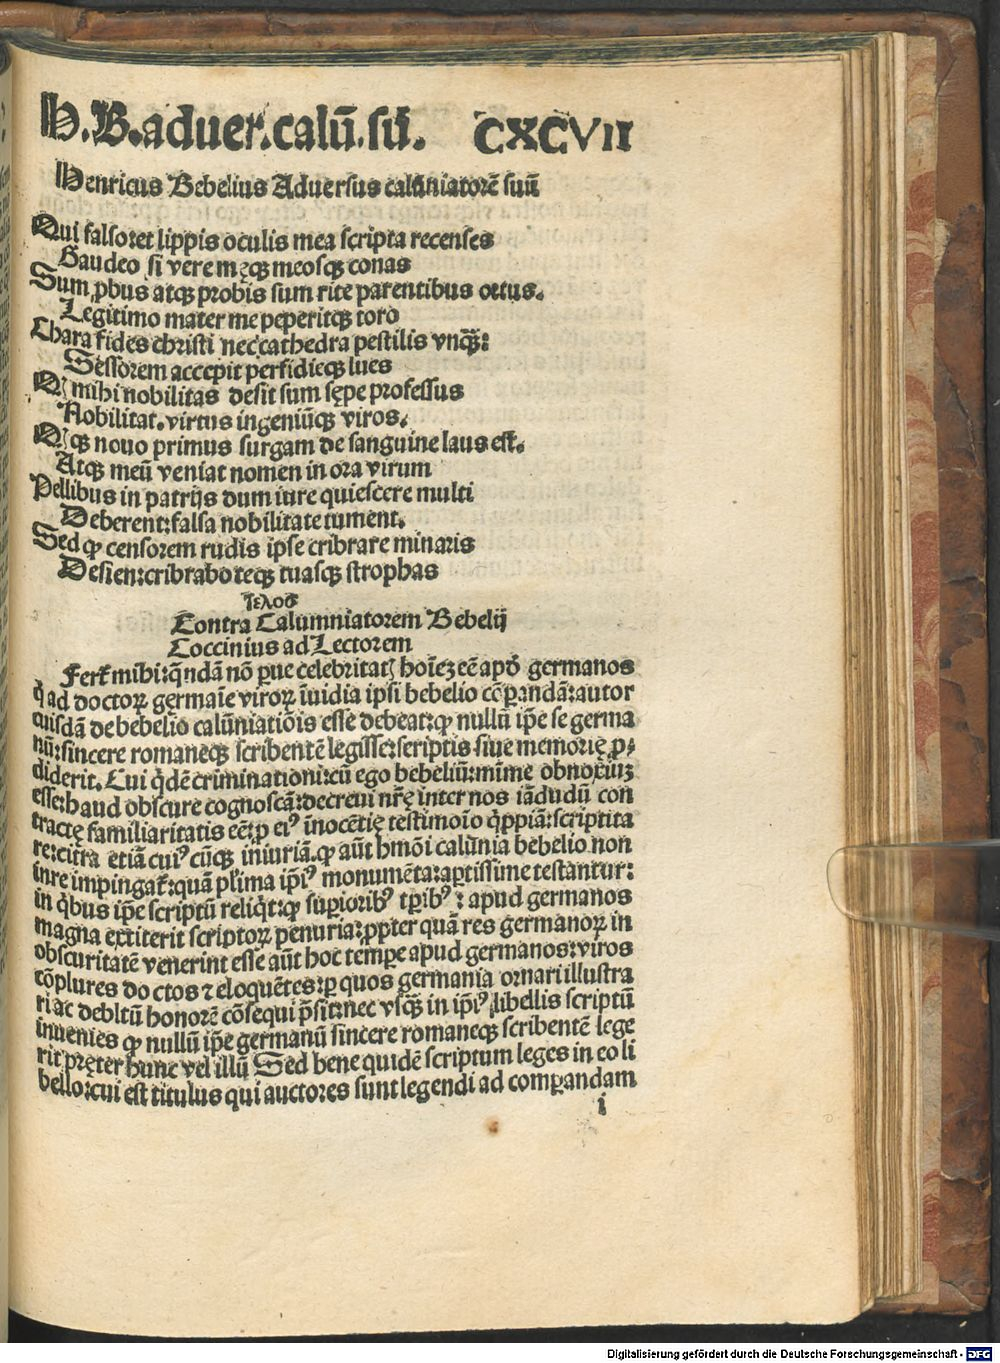 H.B.aduer.calū.sū. CXCVII
Henricus Bebelius Aduersus calūniatorē suū
Qui falso et lippis oculis mea scripta recenses
Gaudeo si vere męqȝ meosqȝ conas
Sum ꝓbus atqȝ probis sum rite parentibus ortus.
Legitimo mater me peperitqȝ toro
Chara fides christi nec cathedra pestilis vnqȝ̃:
Sessorem accepit perfidięqȝ lues
mihi nobilitas desit sum sępe professus
Nobilitat. virtus ingeniūqȝ viros.
nouo primus surgam de sanguine laus est.
Atqȝ meū veniat nomen in ora virum
Pellibus in patrijs dum iure quiescere multi
Deberent: falsa nobilitate tument.
Sed ꝙ censorem rudis ipse cribrare minaris
Desien: cribrabo teqȝ tuasqȝ strophas
τελοσ
Contra Calumniatorem Bebelij
Coccinius ad Lectorem
mihi: q̄ndā nō ꝑue celebritatꝭ hoīeȝ eē apđ germanos
q̇ ad doctoꝝ gęrmaīe viroꝝ īuidia ipsi bebelio cēꝑandā: autor
cuisdā de bebelio calūniatiōis esse debeat: ꝙ nullū ip̄e se germa
nū: sincere romaneqȝ scribentē legisse: scriptis siue memorię ꝓ-
diderit. Cui q̇dē criminationi: cū ego bebeliū: mīme obnoxiūȝ
esse: haud obscure cognoscā: decreui nr̄ę inter nos iādudū con
tractę familiaritatis eē: ꝓ eiꝰ īnocētię testimoīo q̇ppiā: scriptita
re: citra etiā cuiꝰ cūqȝ iniuriā. ꝙ aūt hmōi calūnia bebelio non
iure impingat̃: quā pl̃ima ip̄iꝰ monumēta: aꝑtissime testantur:
in q̇bus ip̄e scriptū reliq̇t: ꝙ suꝑioribꝰ tꝑibꝰ ⁊ apud germanos
magna extiterit scriptoꝝ penuria: ꝓpter quā res germanoꝝ in
obscuritatē venerint esse aūt hoc tempe apud germanos: viros
cōplures doctos ⁊ eloquētes: ꝑ quos germania ornari illustra
ri ac debitū honorē cōsequi p̄sit: nec vsqȝ̃ in ip̄iꝰ libellis scriptū
inuenies ꝙ nullū ip̄e germanū sincere romaneqȝ scribentē lege
rit pręter hunc vel illū Sed bene quidē scriptum leges in eo li
bello: cui est titulus qui auctores sunt legendi ad comꝑandam
i
Digitalisierung gefördert durch die Deutsche Forschungsgemeinschaft - DFG